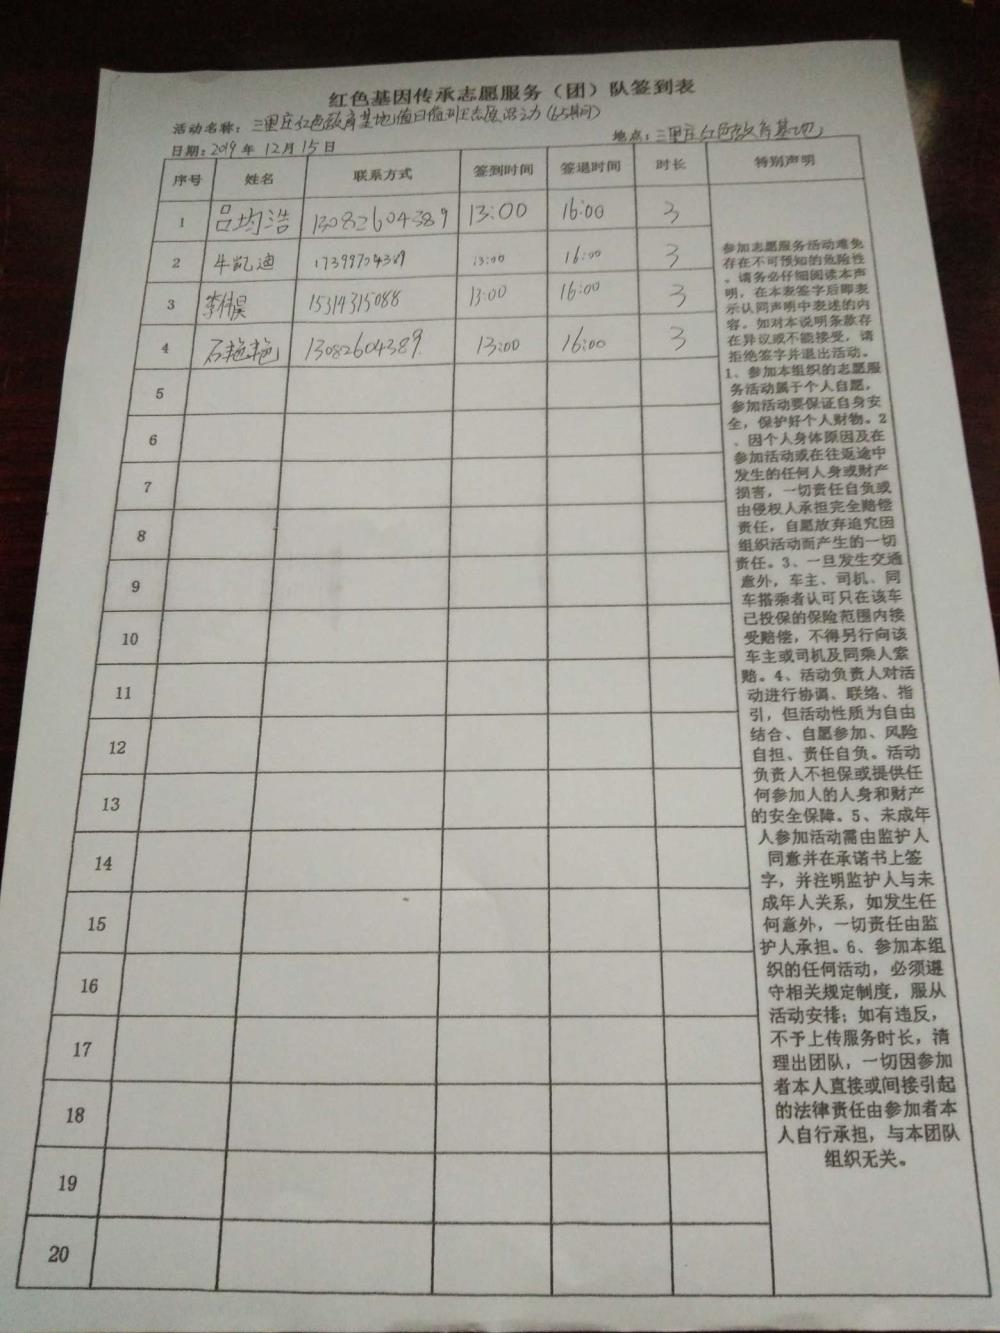 红色基因传承志愿服务（团）队签到表
活动名称：三里庄红色教育基地值日值班志愿活动(65期)
日期：2019 年 12 月 15 日 地点：三里庄红色教育基地
序号 姓名 联系方式 签到时间 签退时间 时长 特别声明
1 吕均浩 13082604389 13:00 16:00 3
2 牛凯迪 13:00 16:00 3
3 李伟昊 15314315088 13:00 16:00 3
4 石艳艳 13082604389 13:00 16:00 3
5
6
7
8
9
10
11
12
13
14
15
16
17
18
19
20
参加志愿服务活动难免
存在不可预知的危险性
，请务必仔细阅读本声
明，在本表签字后即表
示认同声明中表述的内
容。如对本说明条款存
在异议或不能接受，请
拒绝签字并退出活动。
1、参加本组织的志愿服
务活动属于个人自愿，
参加活动要保证自身安
全，保护好个人财物。2
、因个人身体原因及在
参加活动或在往返途中
发生的任何人身或财产
损害，一切责任自负或
由侵权人承担完全赔偿
责任，自愿放弃追究因
组织活动而产生的一切
责任。3、一旦发生交通
意外，车主、司机、同
车搭乘者认可只在该车
已投保的保险范围内接
受赔偿，不得另行向该
车主或司机及同乘人索
赔。4、活动负责人对活
动进行协调、联络、指
引，但活动性质为自由
结合、自愿参加、风险
自担、责任自负。活动
负责人不担保或提供任
何参加人的人身和财产
的安全保障。5、未成年
人参加活动需由监护人
同意并在承诺书上签
字，并注明监护人与未
成年人关系，如发生任
何意外，一切责任由监
护人承担。6、参加本组
织的任何活动，必须遵
守相关规定制度，服从
活动安排；如有违反，
不予上传服务时长，清
理出团队，一切因参加
者本人直接或间接引起
的法律责任由参加者本
人自行承担，与本团队
组织无关。